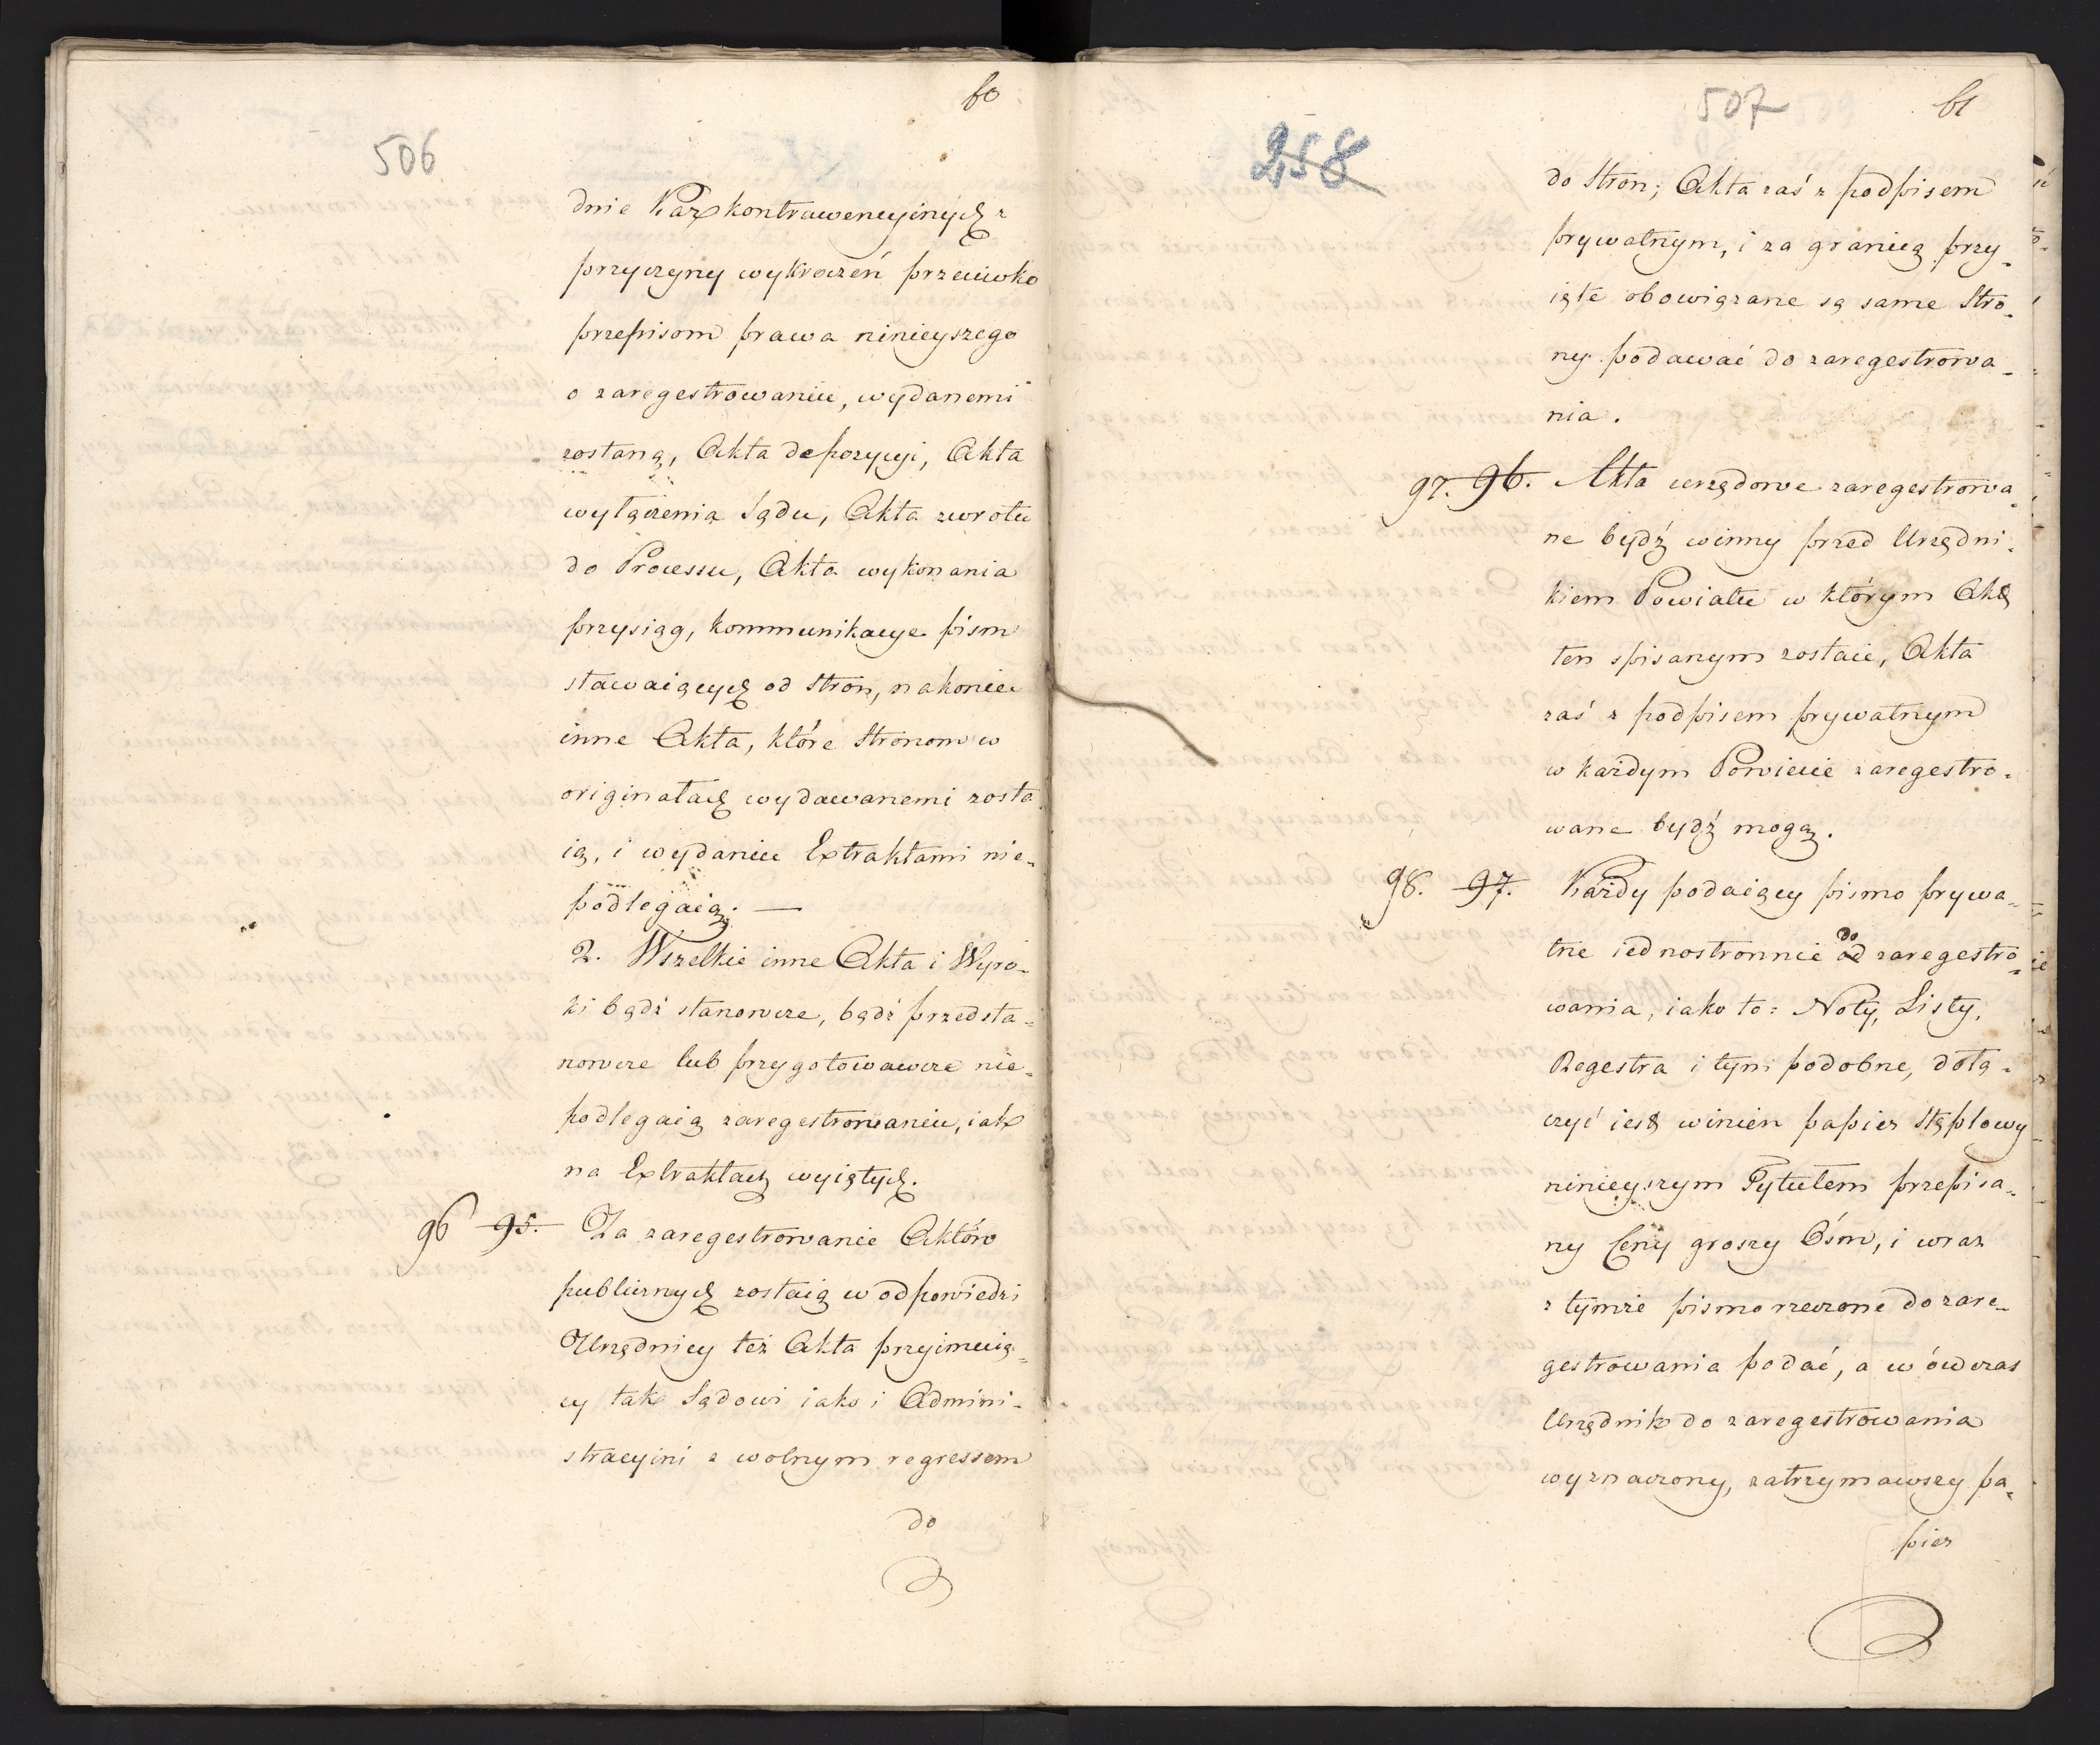 60
506
dnie Kar kontrawencyinych z
przyczyny wykroczeń przeciwko
przepisom prawa ninieyszego
o zaregestrowaniu, wydanemi
zostaną, Akta depozycyi, Akta
wyłączenia Sądu, Akta zwrotu
do Processu, Akta wykonania
przysiąg, kommunikacye pism
stawaiących od Stron, nakoniec
inne Akta, które Stronom w
originałach wydawanemi zosta
ią, i wydaniu Extraktami nie-
podlegaią. —
2. Wszelkie inne Akta i Wyro-
ki bądź stanowcze, bądź przedsta-
nowcze lub przygotowawcze nie-
podlegaią zaregestrowaniu, iak
na Extraktach wyiętych.
96 95. Za zaregestrowanie Aktów
publicznych zostaią w odpowiedzi
Urzędnicy też Akta przyimuią-
cy tak Sądowi iako i Admini-
stracyini z wolnym regressem
do
507
61
258
do Stron; Akta zaś z podpisem
prywatnym, i za granicą przy-
ięte obowiązane są same Stro-
ny podawać do zaregestrowa-
nia.
97. 96. Akta urzędowe zaregestrowa-
ne bydź winny przed Urzędni-
kiem Powiatu w którym Akt
ten spisanym zostaie, Akta
zaś z podpisem prywatnym
w każdym Powiecie zaregestro-
wane bydź mogą.
98. 97. Każdy podaiący pismo prywa-
tne iednostronnie do od zaregestro-
wania, iako to: Noty, Listy,
Regestra i tym podobne, dołą-
czyć iest winien papier stęplowy
ninieyszym Tytułem przepisa-
ny Ceny groszy Ośm, i wraz
z tymże pismo rzeczone do zare-
gestrowania podać, a wówczas
Urzędnik do zaregestrowania
wyznaczony, zatrzymawszy pa-
pier